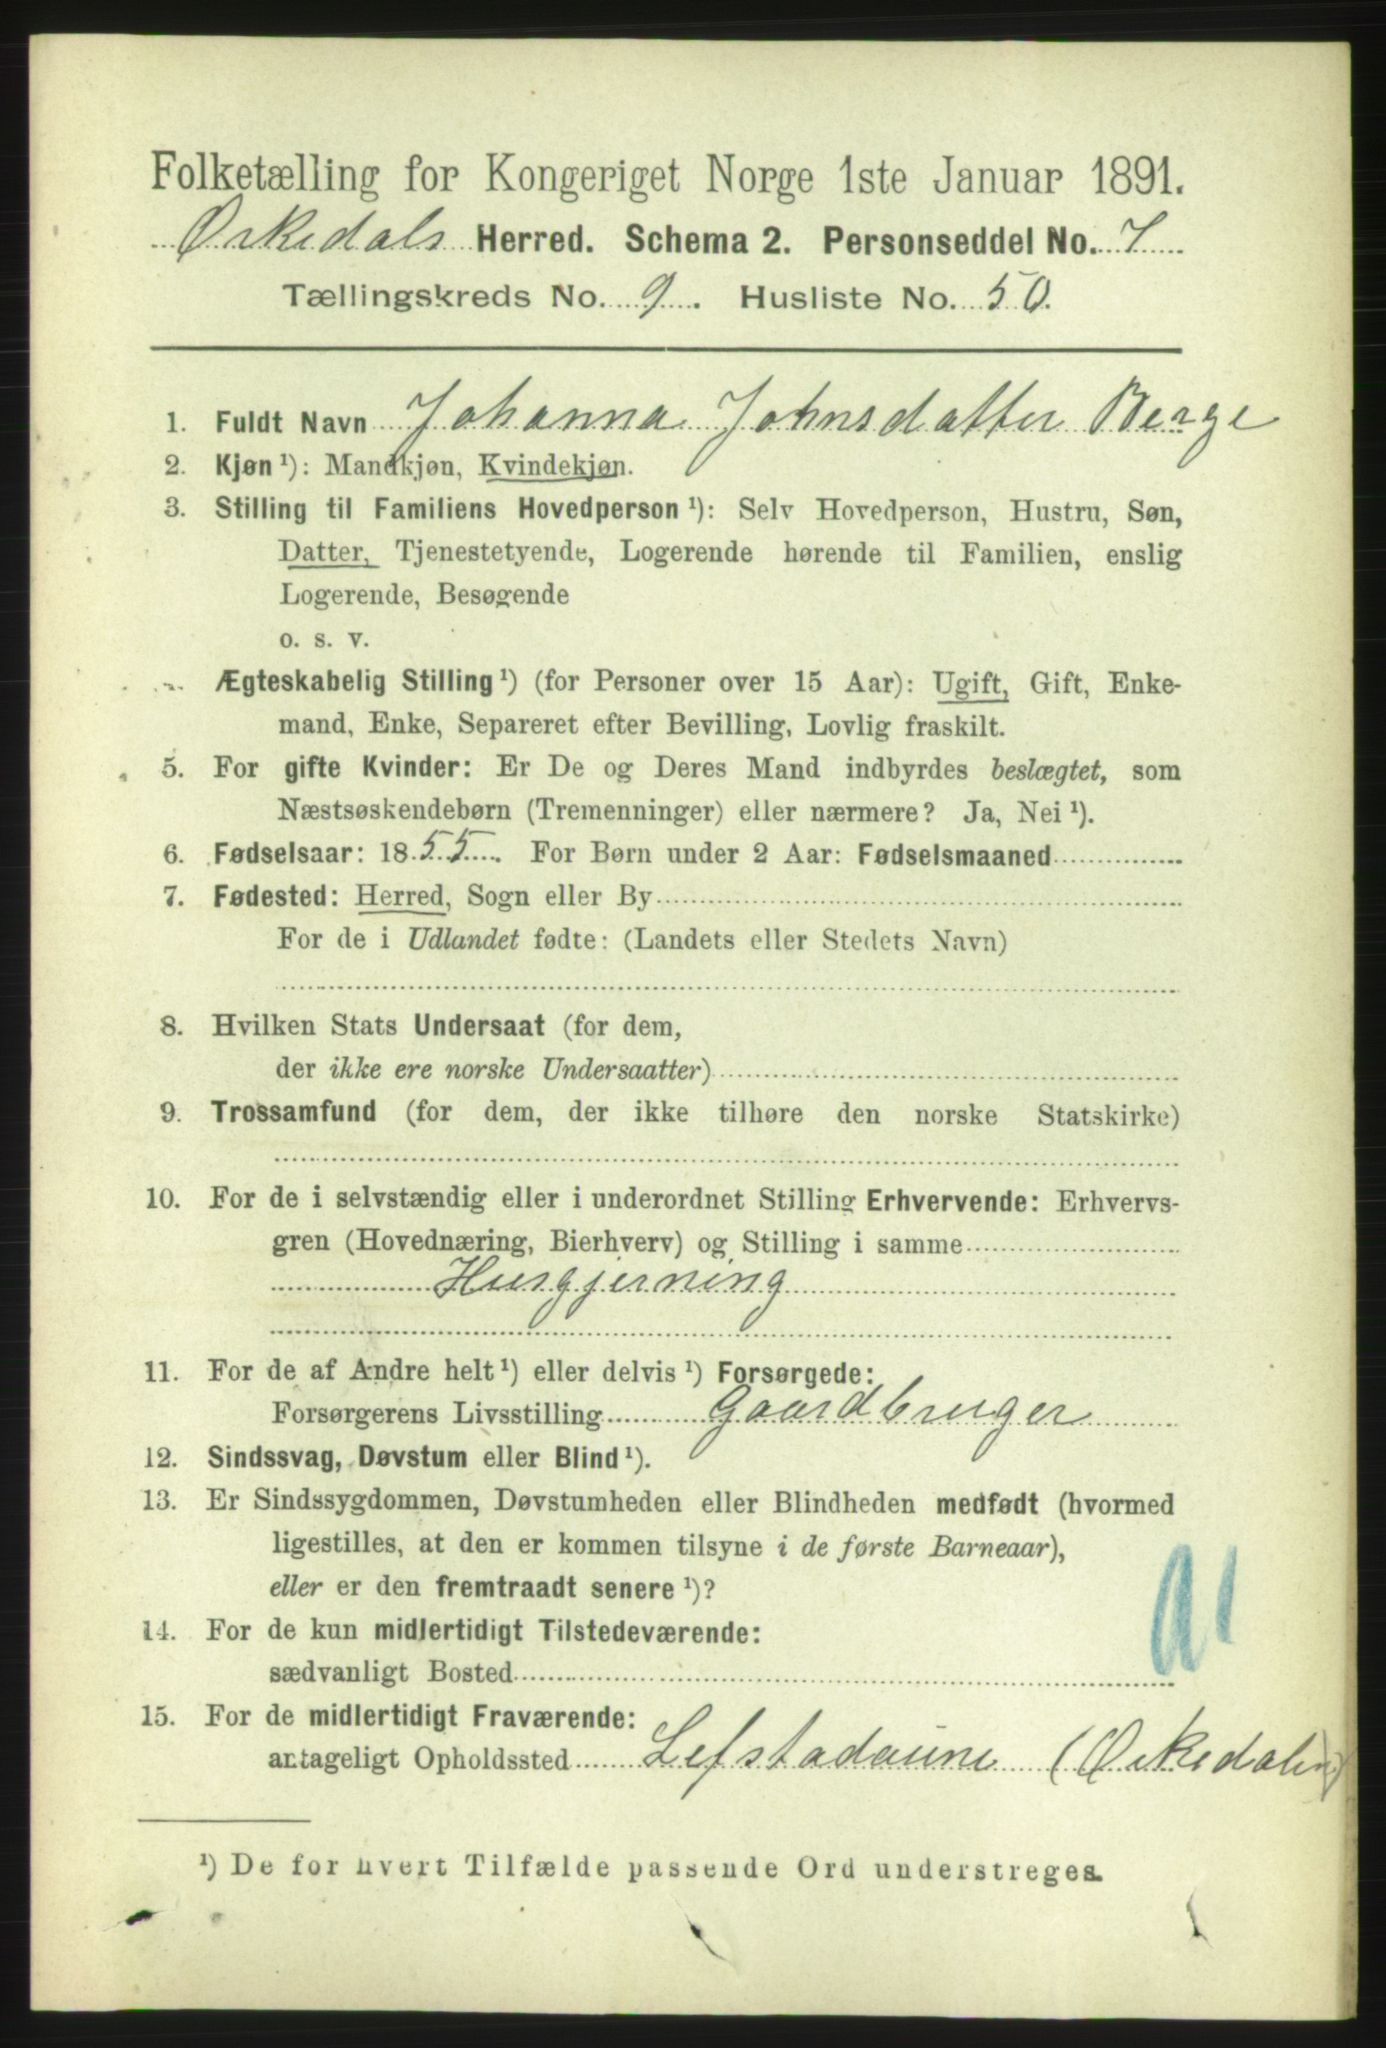 Folketælling for Kongeriget Norge 1ste Januar 1891.
Orkedals Herred. Schema 2. Personseddel No. 7
Tællingskreds No. 9. Husliste No. 50.
1. Fuldt Navn Johanna Johnsdatter Berge
2. Kjøn ¹): Mandkjøn, Kvindekjøn.
3. Stilling til Familiens Hovedperson ¹): Selv Hovedperson, Hustru, Søn,
Datter, Tjenestetyende, Logerende hørende til Familien, enslig
Logerende, Besøgende
o. s. v.
Ægteskabelig Stilling ¹) (for Personer over 15 Aar): Ugift, Gift, Enke-
mand, Enke, Separeret efter Bevilling, Lovlig fraskilt.
5. For gifte Kvinder: Er De og Deres Mand indbyrdes beslægtet, som
Næstsøskendebørn (Tremenninger) eller nærmere? Ja, Nei ¹).
6. Fødselsaar: 1855. For Børn under 2 Aar: Fødselsmaaned
7. Fødested: Herred, Sogn eller By
For de i Udlandet fødte: (Landets eller Stedets Navn)
8. Hvilken Stats Undersaat (for dem,
der ikke ere norske Undersaatter)
9. Trossamfund (for dem, der ikke tilhøre den norske Statskirke)
10. For de i selvstændig eller i underordnet Stilling Erhvervende: Erhvervs-
gren (Hovednæring, Bierhverv) og Stilling i samme
Husgjerning
11. For de af Andre helt ¹) eller delvis ¹) Forsørgede:
Forsørgerens Livsstilling Gaardbruger
12. Sindssvag, Døvstum eller Blind ¹).
13. Er Sindssygdommen, Døvstumheden eller Blindheden medfødt (hvormed
ligestilles, at den er kommen tilsyne i de første Barneaar),
eller er den fremtraadt senere ¹)?
14. For de kun midlertidigt Tilstedeværende:
sædvanligt Bosted
15. For de midlertidigt Fraværende:
antageligt Opholdssted Lefstadaune (Orkedalen)
¹) De for hvert Tilfælde passende Ord understreges.